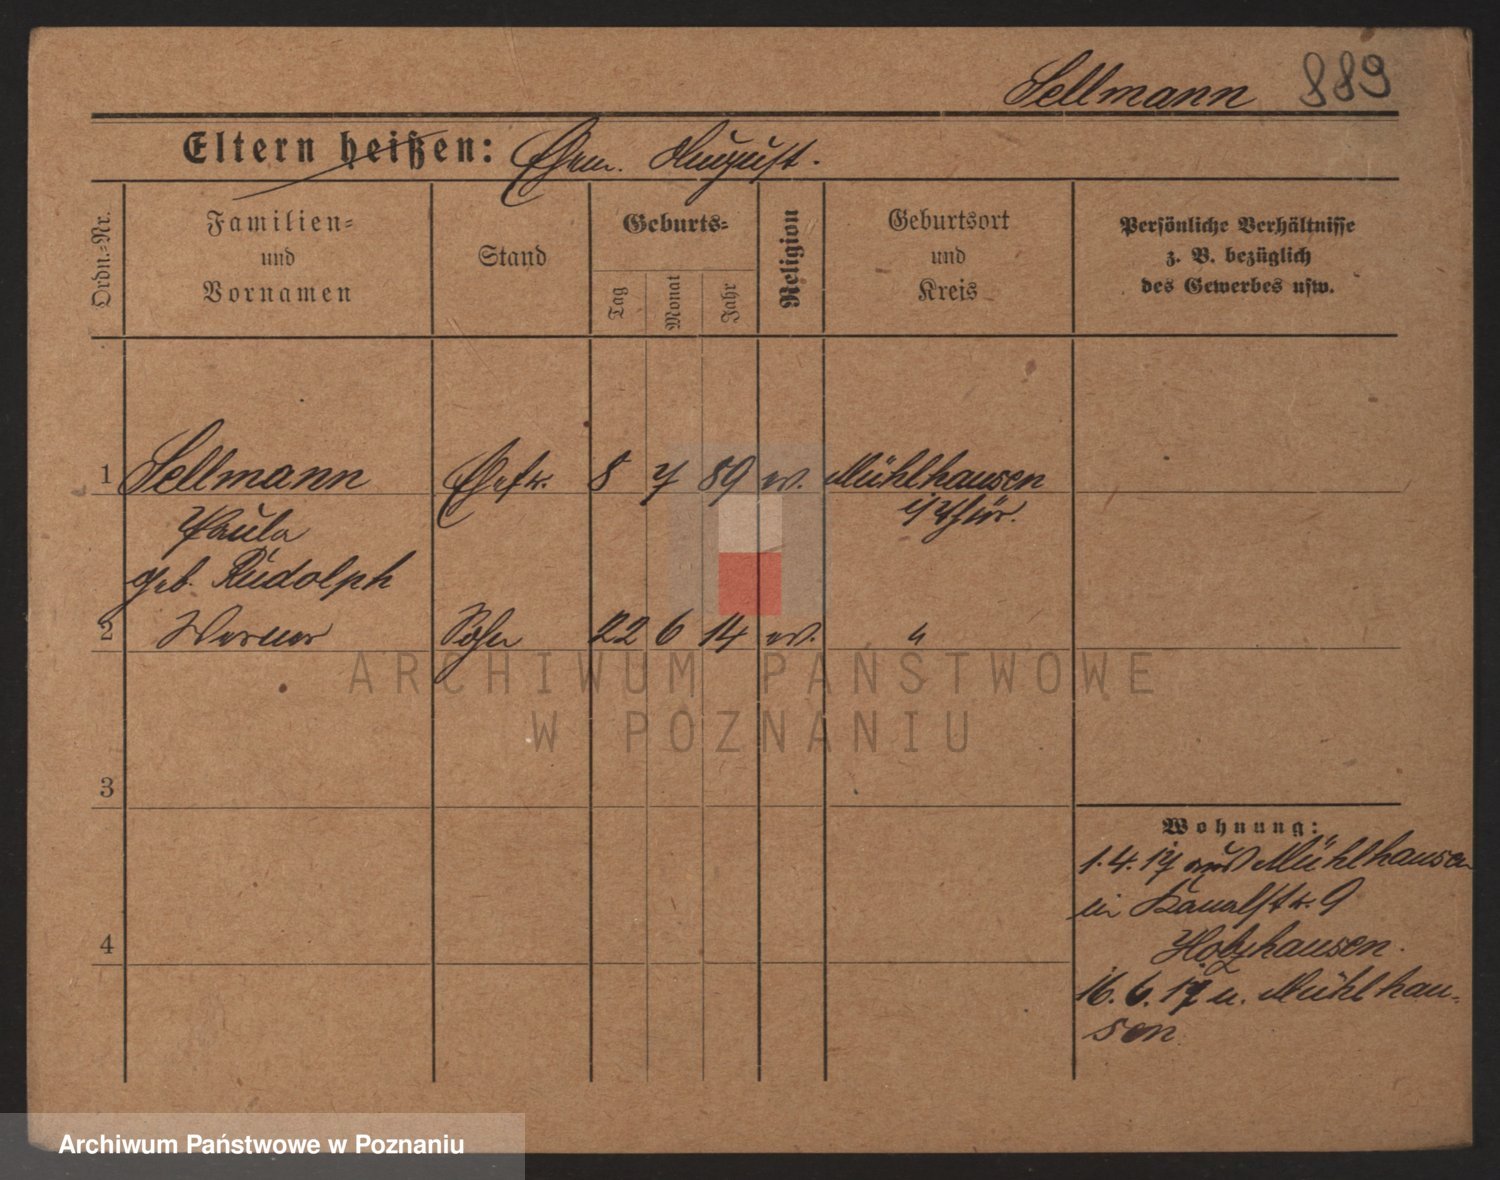 Sellmann 889
Eltern heißen: Ehem. August.
Ordn.-Nr.
Familien- und Vornamen
Stand
Geburts-
Tag
Monat
Jahr
Religion
Geburtsort und Kreis
Persönliche Verhältnisse
z. B. bezüglich
des Gewerbes usw.
1 Sellmann Ehefr. 8 7 89 ev. Mühlhausen
i/Thür.
Paula
geb. Rudolph
2 Werner Sohn 22 6 14 ev. "
3
4
Wohnung:
1.4.17 aus Mühlhausen
in Kanalstr. 9
Holzhausen.
16.6.17 n. Mühlhau-
sen
ARCHIWUM PAŃSTWOWE
W POZNANIU
Archiwum Państwowe w Poznaniu